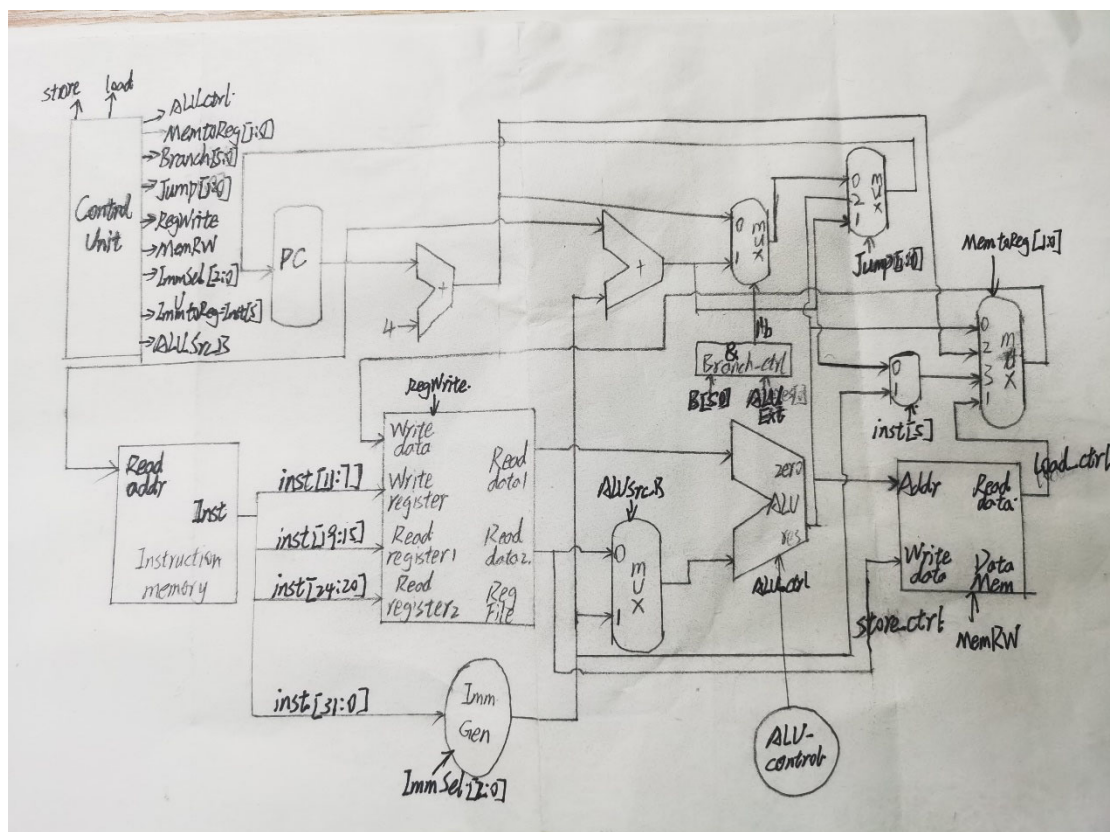 store
load
ALUctrl.
MemtoReg[1:0]
Branch[5:0]
Jump[1:0]
RegWrite
MemRW
ImmSel[2:0]
ImmtoReg=Inst[5]
ALUSrc_B
Control
Unit
PC
4
+
+
0
1
MUX
0
2
1
MUX
Jump[1:0]
MemtoReg[1:0]
0
2
3
1
MUX
&
Branch_ctrl
B[5:0]
ALU
Ext
0
1
inst[5]
load_ctrl
RegWrite.
Write
data
Write
register
Read
register1
Read
register2
Read
data1
Read
data2.
Reg
File
Read
addr
Inst
Instruction
memory
inst[11:7]
inst[19:15]
inst[24:20]
inst[31:0]
ALUSrc.B
0
1
MUX
zero
ALU
res
ALU_Ctrl
Addr
Read
data
Write
data
Data
Mem
store_ctrl
MemRW
Imm
Gen
ImmSel[2:0]
ALU-
control